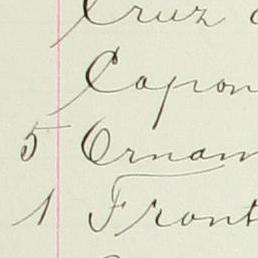 Cruz
Capon
5 Ornam
1 Front